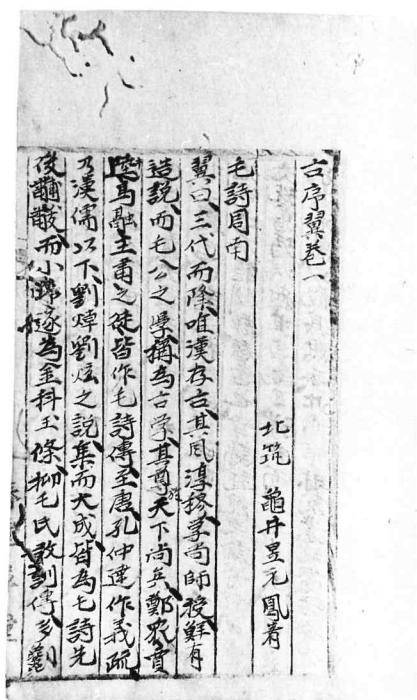 古序翼巻一
北筑 龜井昱元鳳著
毛詩周南
翼曰三代而降唯漢存古其風淳樸學尚師授鮮有
造說而毛公之學稱為古学其尊於天下尚矣鄭衆賈
逵馬融王肅之徒皆作毛詩傳至唐孔仲達作義疏
乃漢儒以下劉焯劉炫之說集而大成皆為毛詩先
後黼黻而小遂為金科玉條抑毛氏故訓傳多